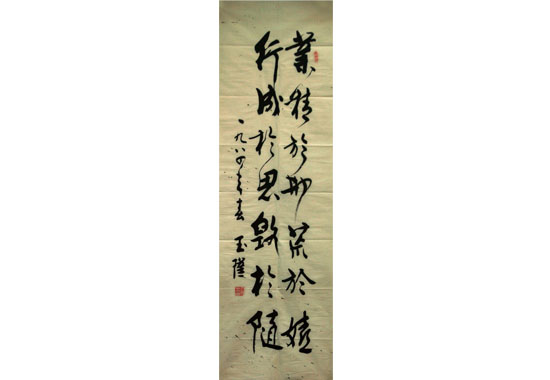 業精於勤荒於嬉
行成於思毀於隨
一九八四年春 玉